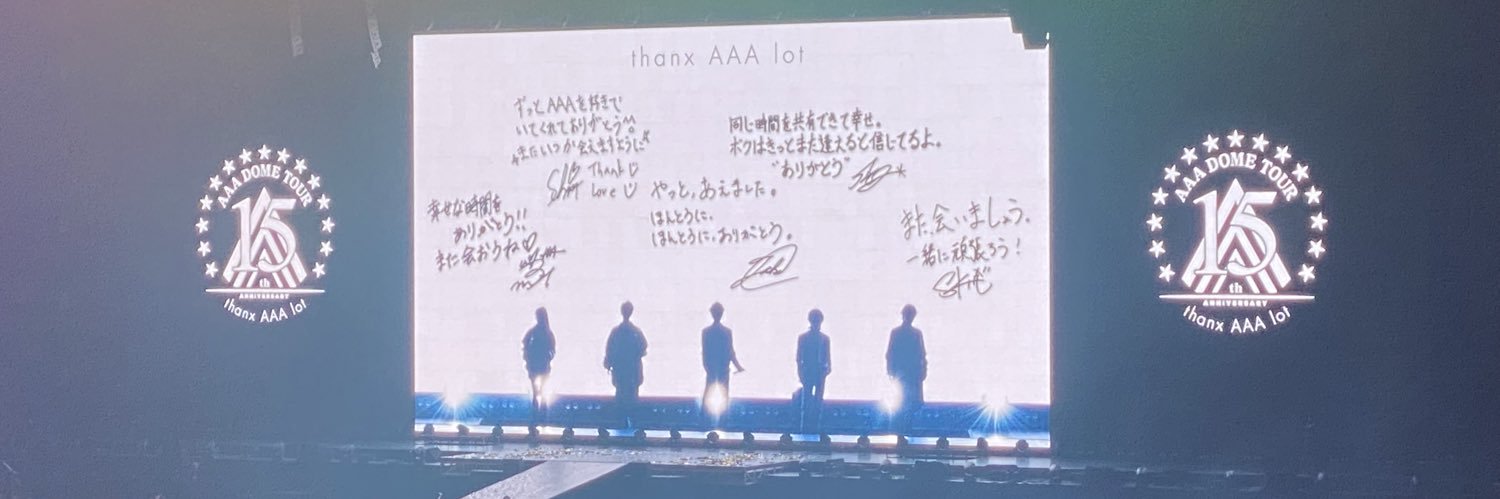 thanx AAA lot
ずっとAAAを好きで
いてくれてありがとう^^
またいつか会えますように
Thank
Love
同じ時間を共有できて幸せ。
ボクはきっとまた逢えると信じてるよ。
"ありがとう"
幸せな時間を
ありがとう!!
また会おうね♡
やっと、あえました。
ほんとうに、
ほんとうに、ありがとう。
また会いましょう。
一緒に頑張ろう!
AAA DOME TOUR
15
th
ANNIVERSARY
thanx AAA lot
AAA DOME TOUR
15
th
ANNIVERSARY
thanx AAA lot